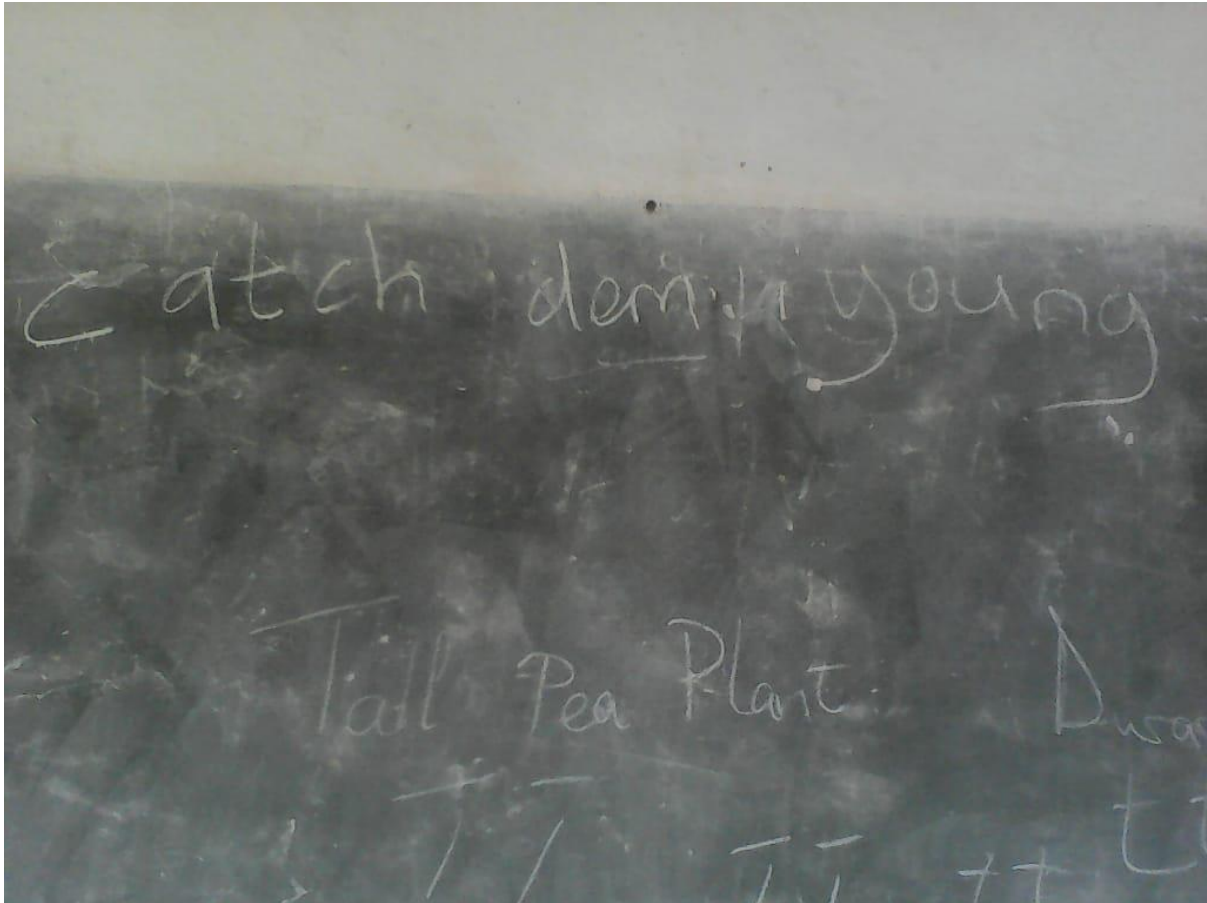 Catch dem young
Tall Pea Plant
TT TT tt